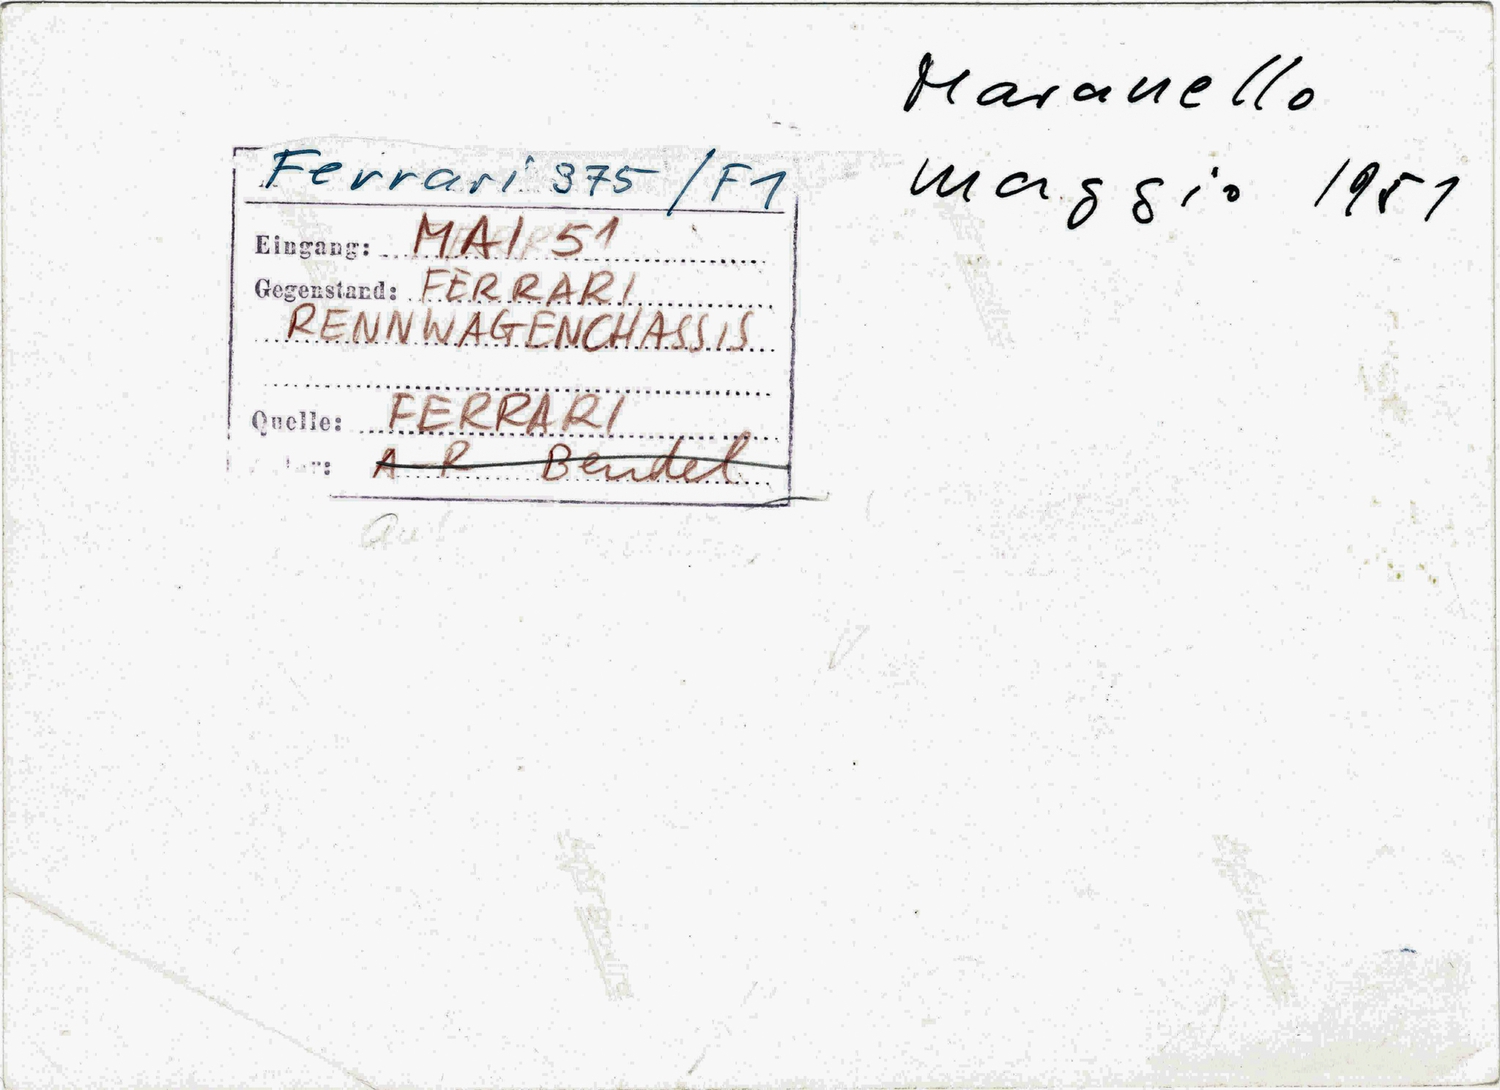 Maranello
maggio 1951
Ferrari 375/F1
Eingang: MAI 51
Gegenstand: FERRARI
RENNWAGENCHASSIS
Quelle: FERRARI
A R Bendel